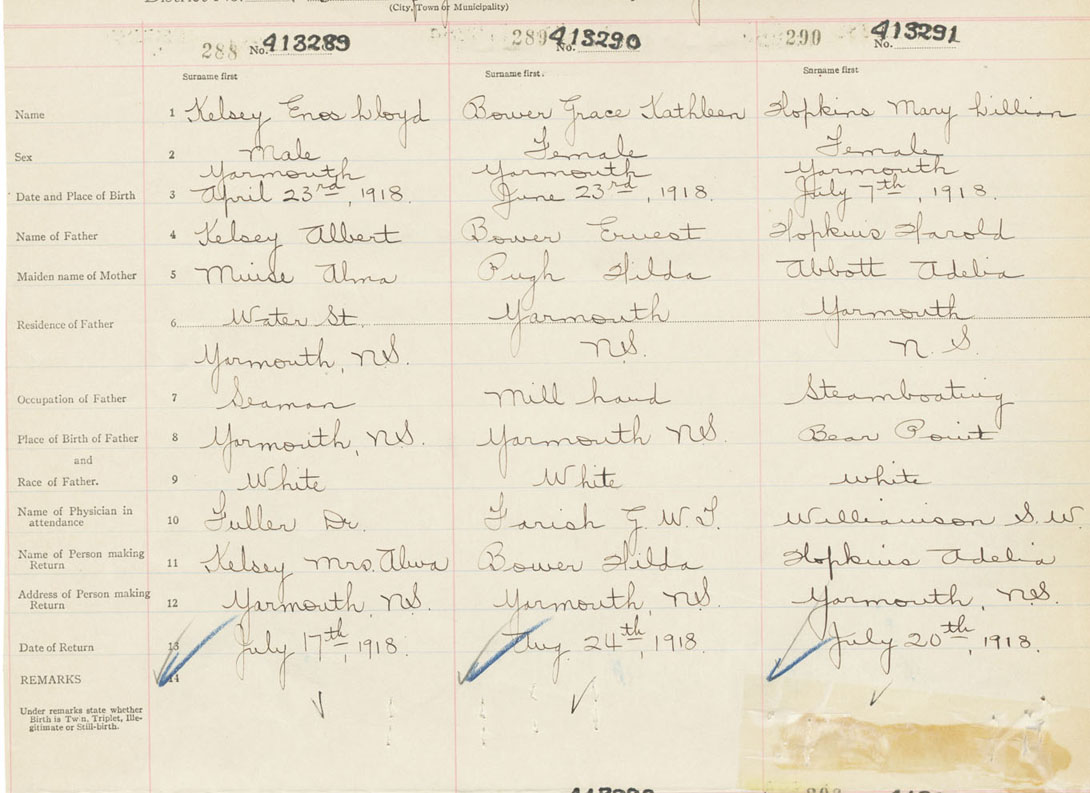 (City, Town or Municipality)
288 No. 413289 289 No. 413290 290 No. 413291
Surname first Surname first. Surname first
Name 1 Kelsey Enos Lloyd Bower Grace Kathleen Hopkins Mary Lillian
Sex 2 Male Female Female
Yarmouth Yarmouth Yarmouth
Date and Place of Birth 3 April 23rd, 1918. June 23rd, 1918. July 7th, 1918.
Name of Father 4 Kelsey Albert Bower Ernest Hopkins Harold
Maiden name of Mother 5 Muise Alma Pugh Hilda Abbott Adelia
Residence of Father 6 Water St. Yarmouth Yarmouth
Yarmouth, N.S. N.S. N. S.
Occupation of Father 7 Seaman Mill hand Steamboating
Place of Birth of Father 8 Yarmouth, N.S. Yarmouth N.S. Bear Point
and
Race of Father. 9 White White White
Name of Physician in
attendance 10 Fuller Dr. Farish G. W. T. Williamson S. W.
Name of Person making
Return 11 Kelsey Mrs. Alma Bower Hilda Hopkins Adelia
Address of Person making
Return 12 Yarmouth, N.S. Yarmouth, N.S. Yarmouth, N.S.
Date of Return 13 July 17th, 1918. Aug. 24th, 1918. July 20th, 1918.
REMARKS 14
Under remarks state whether
Birth is Twin, Triplet, Ille-
gitimate or Still-birth.